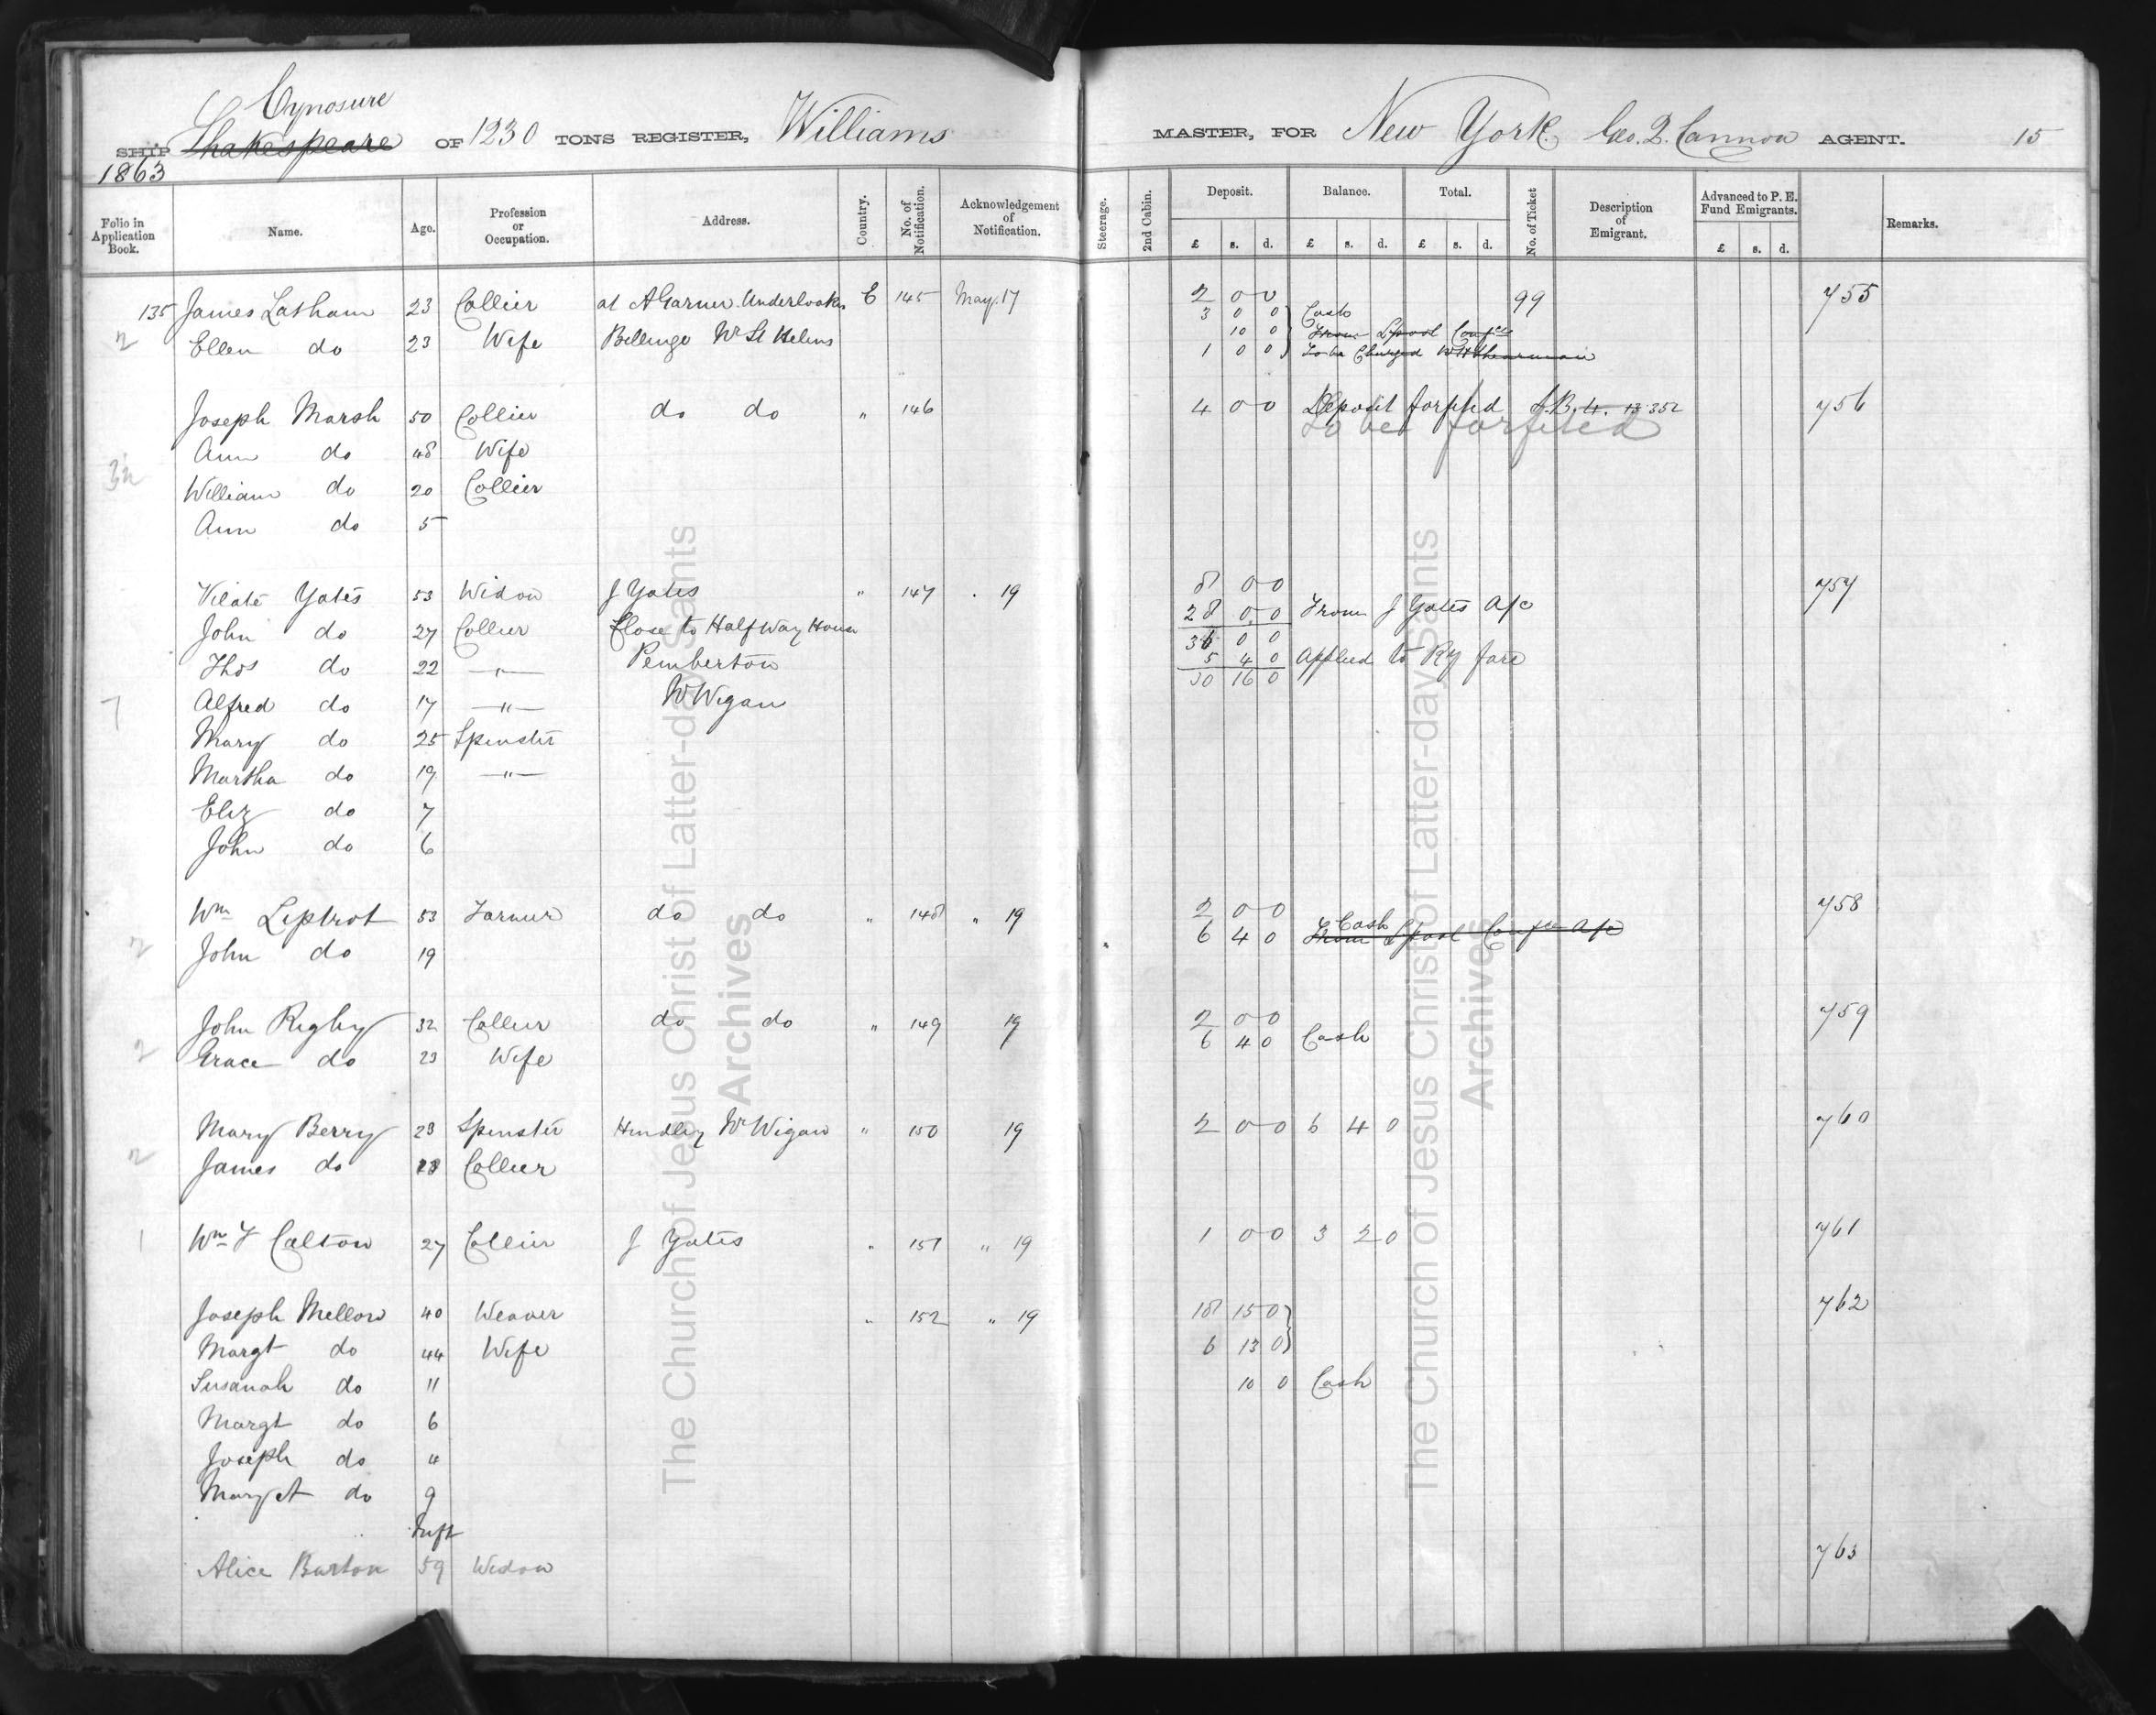 Cynosure
SHIP Shakespeare OF 1230 TONS REGISTER, Williams MASTER, FOR New York. Geo. Q. Cannon AGENT. 15
1863
Folio in Application Book. Name. Age. Profession or Occupation. Address. Country. No. of Notification. Acknowledgement of Notification. Steerage. 2nd Cabin. Deposit. Balance. Total. No. of Ticket Description of Emigrant. Advanced to P. E. Fund Emigrants. Remarks.
£ s. d. £ s. d. £ s. d. £ s. d.
135 James Latham 23 Collier at A Garner Underlooker E 145 May. 17 2 0 0 99 755
3 0 0 Cash
2 Ellen do 23 Wife Billinge Nr St Helens 10 0 From Lpool Confce
1 0 0 To be Charged W H Shearman
Joseph Marsh 50 Collier do do " 146 4 0 0 Deposit forfitd 756
To be forfited
Ann do 48 Wife
3½ William do 20 Collier
Ann do 5
Vilate Yates 53 Widow J Yates " 147 . 19 8 0 0 757
28 0 0 From J Yates A/c
John do 27 Collier Close to Half Way House 36 0 0
Thos do 22 —"— Pemberton 5 4 0 Applied to Ry fare
30 16 0
7 Alfred do 17 —"— Nr Wigan
Mary do 25 Spinster
Martha do 19 —"—
Eliz do 7
John do 6
Wm Liptrot 53 Farmer do do " 148 " 19 2 0 0 758
Cash
6 4 0 From Lpool Confce A/c
2 John do 19
John Rigby 32 Collier do do " 149 19 2 0 0 759
6 4 0 Cash
2 Grace do 23 Wife
Mary Berry 23 Spinster Hindley Nr Wigan " 150 19 2 0 0 6 4 0 760
2 James do 18 Collier
1 Wm F Calton 27 Collier J Yates " 151 " 19 1 0 0 3 2 0 761
Joseph Mellow 40 Weaver " 152 " 19 18 15 0 762
Margt do 44 Wife 6 13 0
Susanah do 11 10 0 Cash
Margt do 6
Joseph do 4
do 9
Inft
Alice Barton 59 Widow 763
The Church of Jesus Christ of Latter-day Saints
Archives
The Church of Jesus Christ of Latter-day Saints
Archives